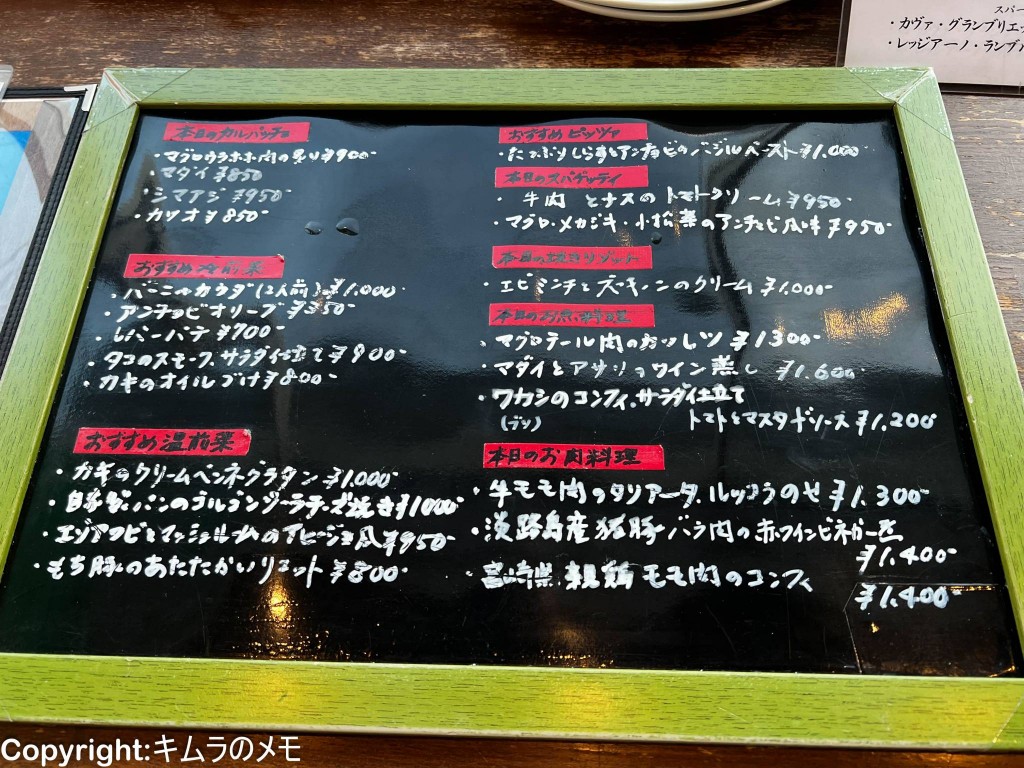 スパー
・カヴァ・グランブリエッ
・レッジアーノ・ランブル
本日のカルパッチョ
・マグロウラホホ肉の炙り ¥900-
・マダイ ¥850
・シマアジ ¥950-
・カツオ ¥850-
おすすめ冷前菜
・バーニャカウダ(2人前) ¥1.000-
・アンチョビオリーブ ¥350-
・レバーパテ ¥700-
・タコのスモーク、サラダ仕立て ¥900-
・カキのオイルづけ ¥800-
おすすめ温前菜
・カキのクリームペンネグラタン ¥1.000-
・自家製パンのゴルゴンゾーラチーズ焼き ¥1000-
・エゾアワビとマッシュルームのアヒージョ風 ¥950-
・もち豚のあたたかいリエット ¥800-
おすすめピッツァ
・たっぷりしらすとアンチョビのバジルペースト ¥1.000-
本日のスパゲッティ
・牛肉とナスのトマトクリーム ¥950-
・マグロ・メカジキ・小松菜のアンチョビ風味 ¥950-
本日の焼きリゾット
・エビミンチとズッキーニのクリーム ¥1.000-
本日のお魚料理
・マグロテール肉のカツレツ ¥1300-
・マダイとアサリのワイン蒸し ¥1.600-
・ワカシのコンフィ、サラダ仕立て
(ブリ) トマトとマスタードソース ¥1.200-
本日のお肉料理
・牛モモ肉のタリアータ、ルッコラのせ ¥1.300-
・淡路島産猪豚バラ肉の赤ワインビネガー煮
¥1.400-
・宮崎県 親鶏モモ肉のコンフィ
¥1.400-
Copyright:キムラのメモ